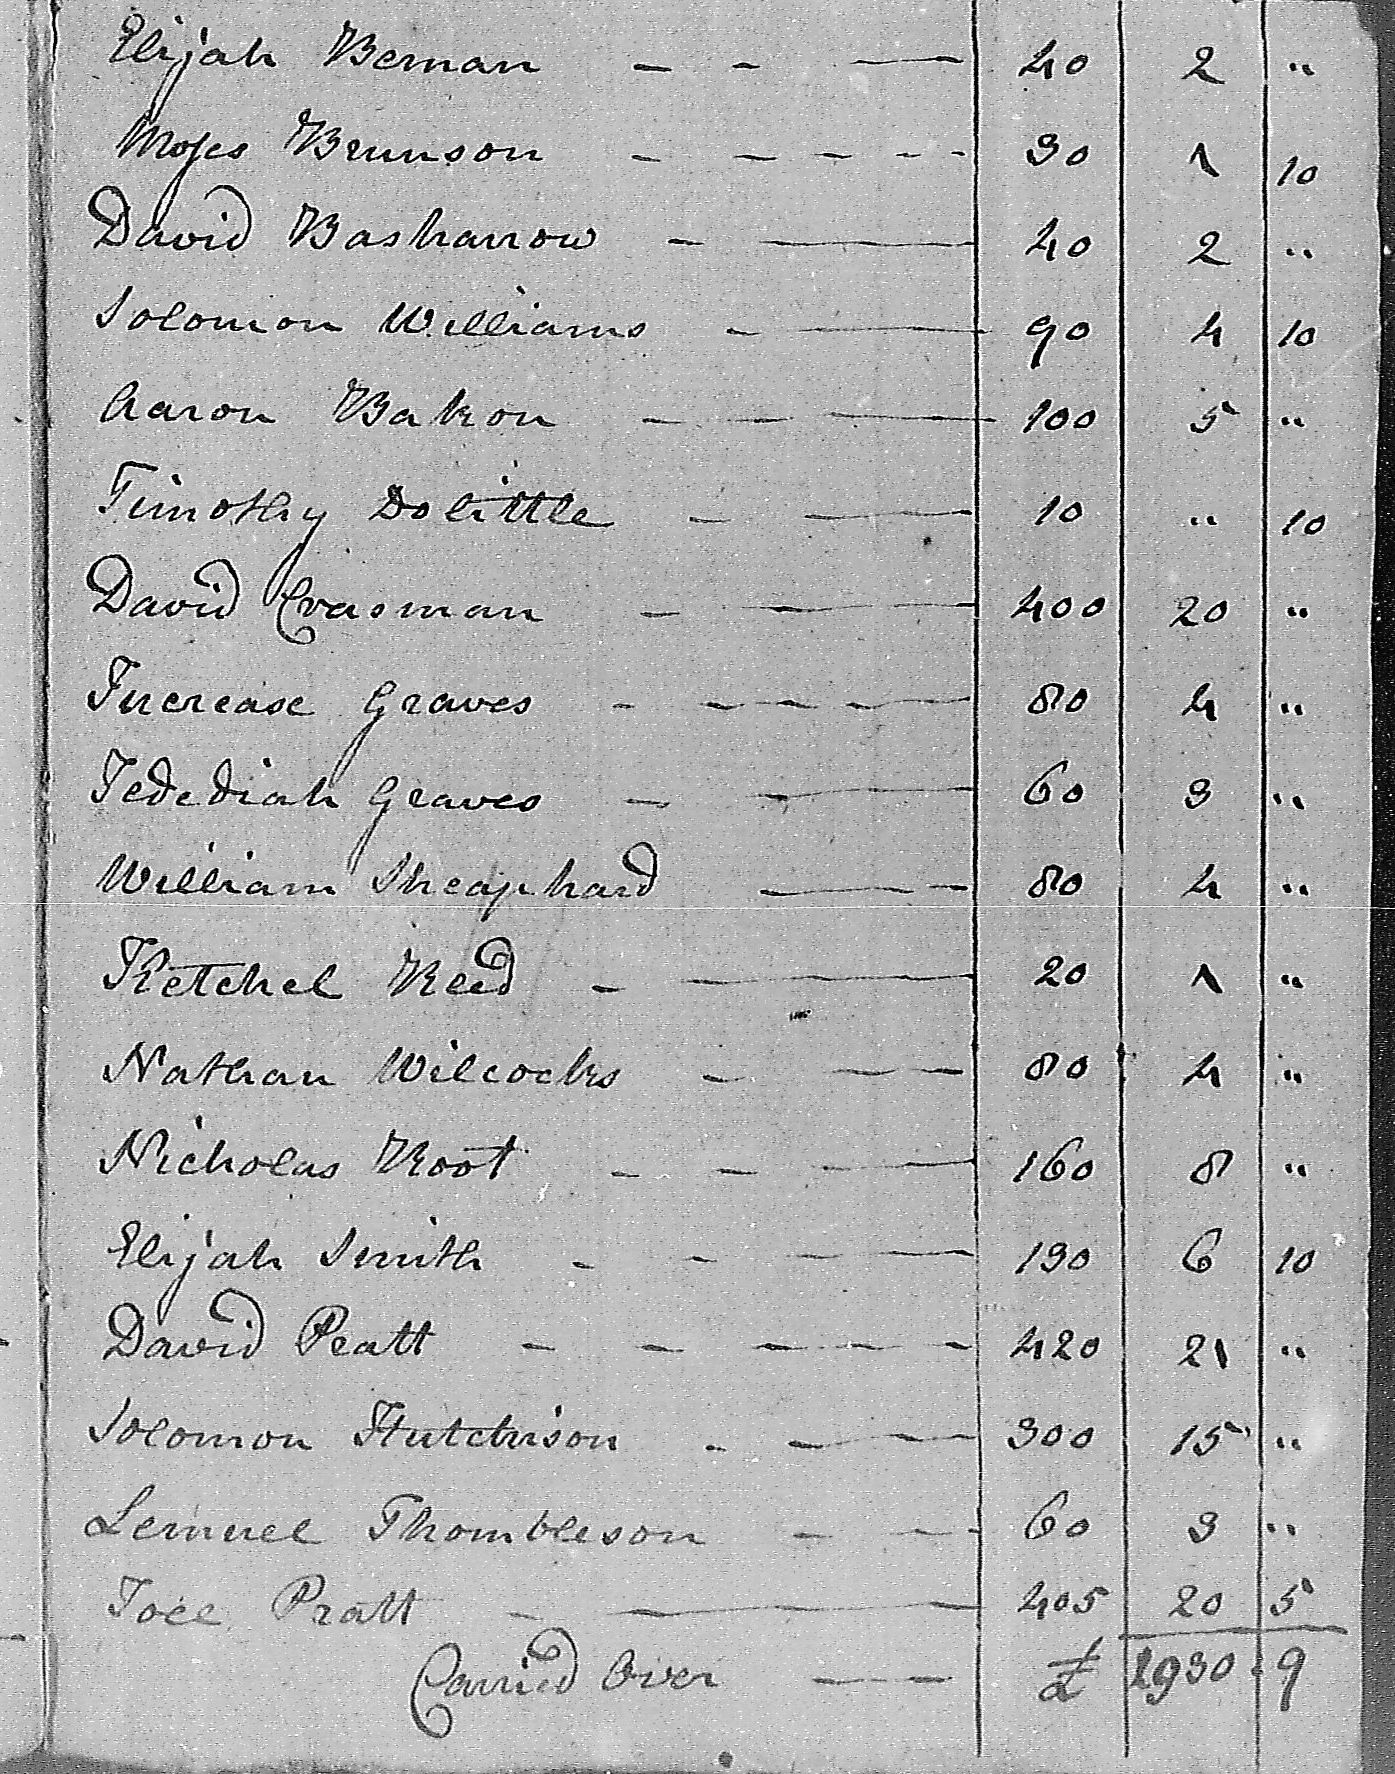 Elijah Beman — - — 40 2 "
Moses Brunson - - - - - - 30 1 10
David Basharrow - — 40 2 "
Solomon Williams - — 90 4 10
Aaron Bakon — - — 100 5 "
Timothy Dolittle - — 10 " 10
David Crasman - — 400 20 "
Increase Graves - - - - — 80 4 "
Jedediah Graves - — 60 3 "
William Sheaphard — - 80 4 "
Ketchel Reed - — 20 1 "
Nathan Wilcocks - — - 80 4 "
Nicholas Root - - - — 160 8 "
Elijah Smith - - — 130 6 10
David Peatt - - - - - 420 21 "
Solomon Hutchison - - — 300 15 "
Lemuel Thombleson - - - 60 3 "
Joel Pratt - — 405 20 5
Carried Over — - £ 1930 9